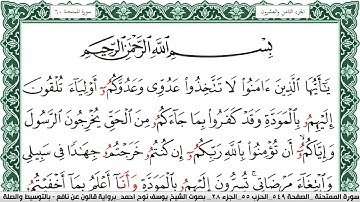 الجزء الثامن والعشرون
سورة الممتحنة ٦٠
بِسْمِ اللَّهِ الرَّحْمَٰنِ الرَّحِيمِ
يَٰٓأَيُّهَا الَّذِينَ ءَامَنُوا لَا تَتَّخِذُوا عَدُوِّي وَعَدُوَّكُمُۥ أَوْلِيَآءَ تُلْقُونَ
إِلَيْهِمُۥ بِالْمَوَدَّةِ وَقَدْ كَفَرُوا بِمَا جَآءَكُمُۥ مِنَ الْحَقِّ يُخْرِجُونَ الرَّسُولَ
وَإِيَّاكُمُۥٓ أَن تُؤْمِنُوا بِاللَّهِ رَبِّكُمُۥٓ إِن كُنتُمُۥ خَرَجْتُمُۥ جِهَٰدًا فِي سَبِيلِي
وَابْتِغَآءَ مَرْضَاتِي تُسِرُّونَ إِلَيْهِمُۥ بِالْمَوَدَّةِ وَأَنَآ أَعْلَمُ بِمَآ أَخْفَيْتُمُۥ
سورة الممتحنة - الصفحة ٥٤٩ الحزب ٥٥ الجزء ٢٨ - بصوت الشيخ يوسف نوح احمد برواية قالون عن نافع - بالتوسيط والصلة